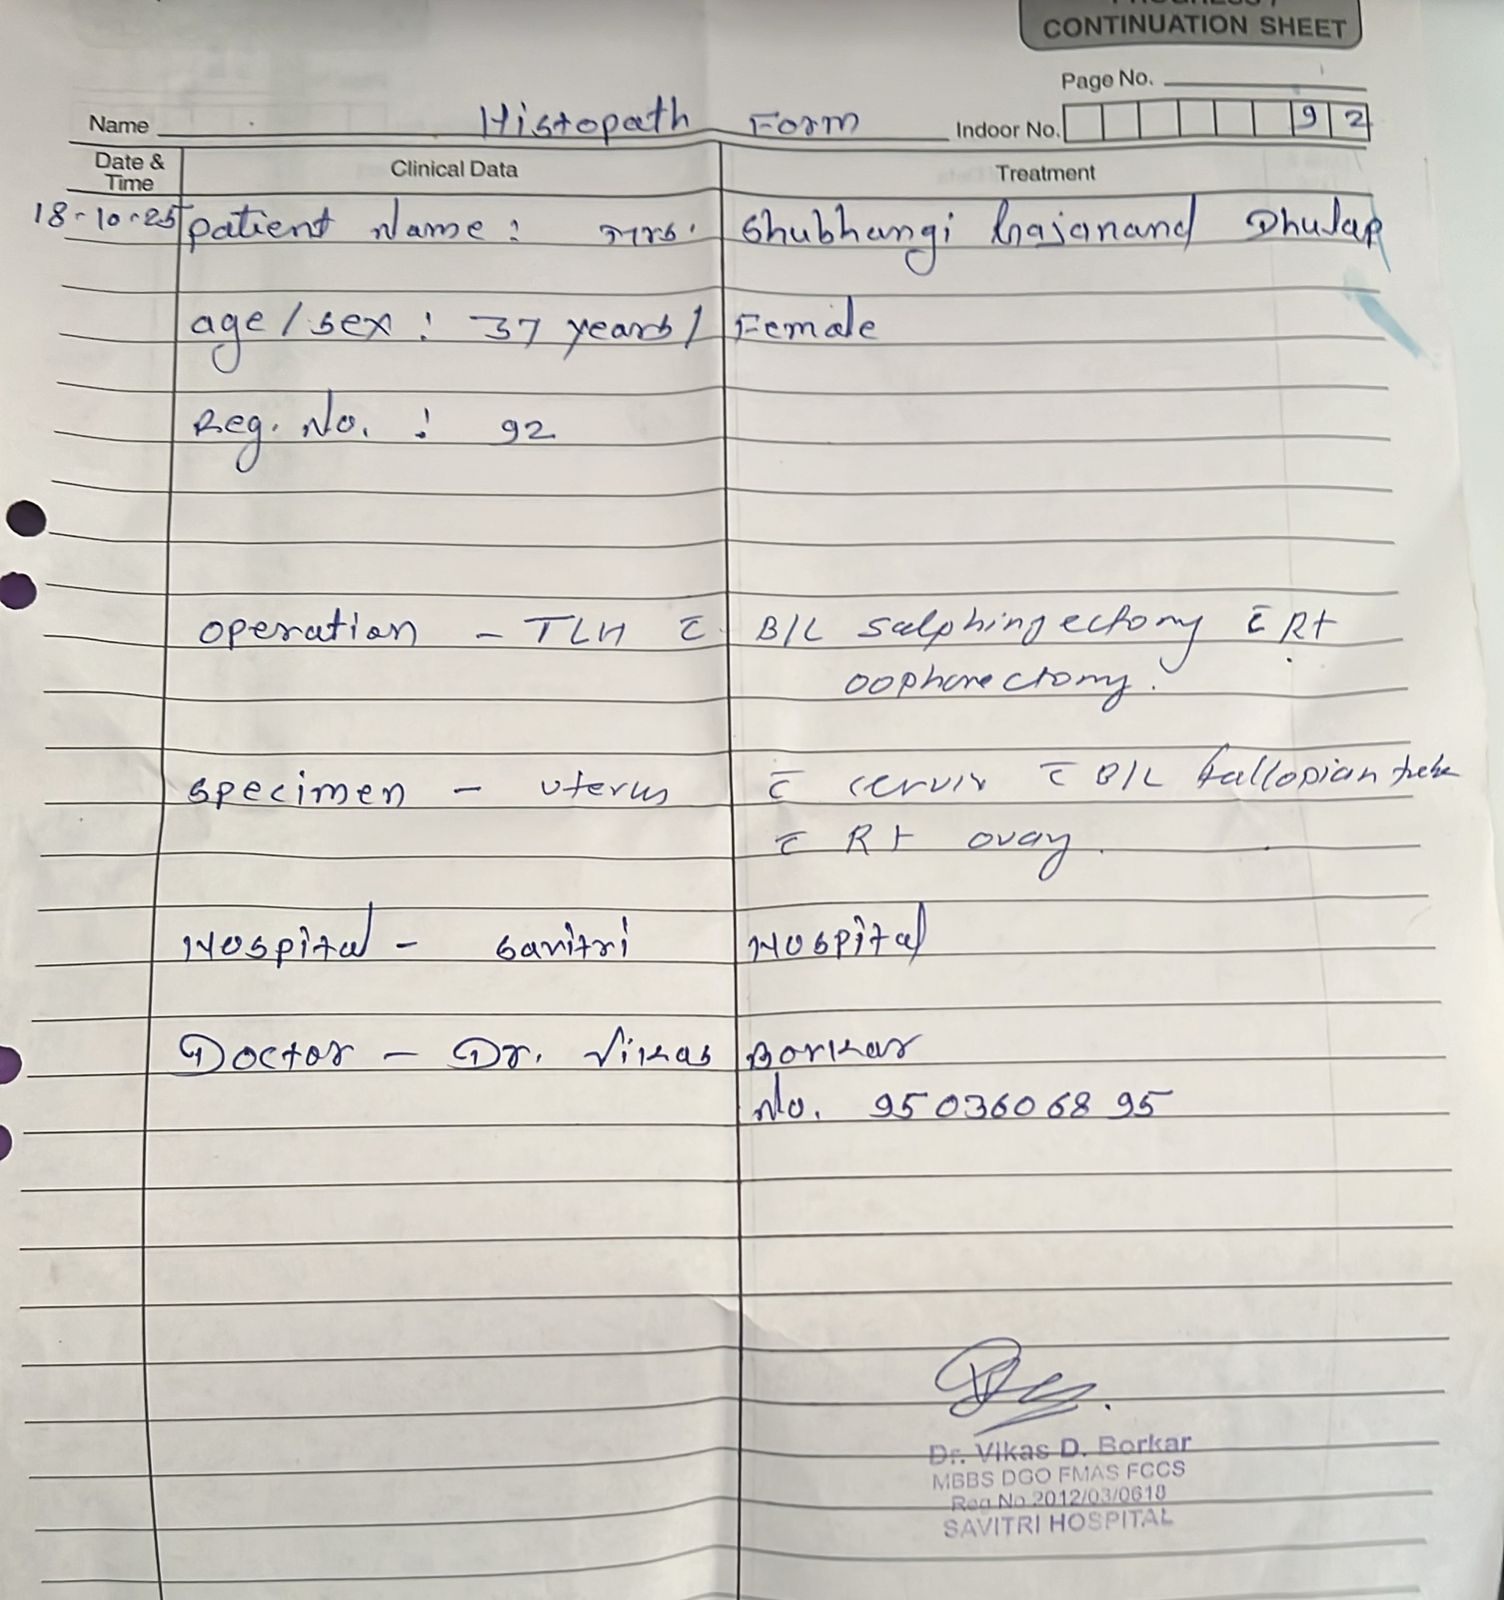 CONTINUATION SHEET
Page No.
Name Histopath Form Indoor No. 92
Date & Time Clinical Data Treatment
18-10-25 patient Name : Mrs. Shubhangi Gajanand Dhulap
age / sex : 37 years / Female
Reg. No. : 92
operation - TLH c̄ B/L salphingectomy c̄ Rt
oophorectomy.
specimen - uterus c̄ cervix c̄ B/L fallopian tube
c̄ Rt ovay.
Hospital - Savitri Hospital
Doctor - Dr. Vikas Borkar
No. 9503606895
Dr. Vikas D. Borkar
MBBS DGO FMAS FCCS
Reg No 2012/03/0618
SAVITRI HOSPITAL